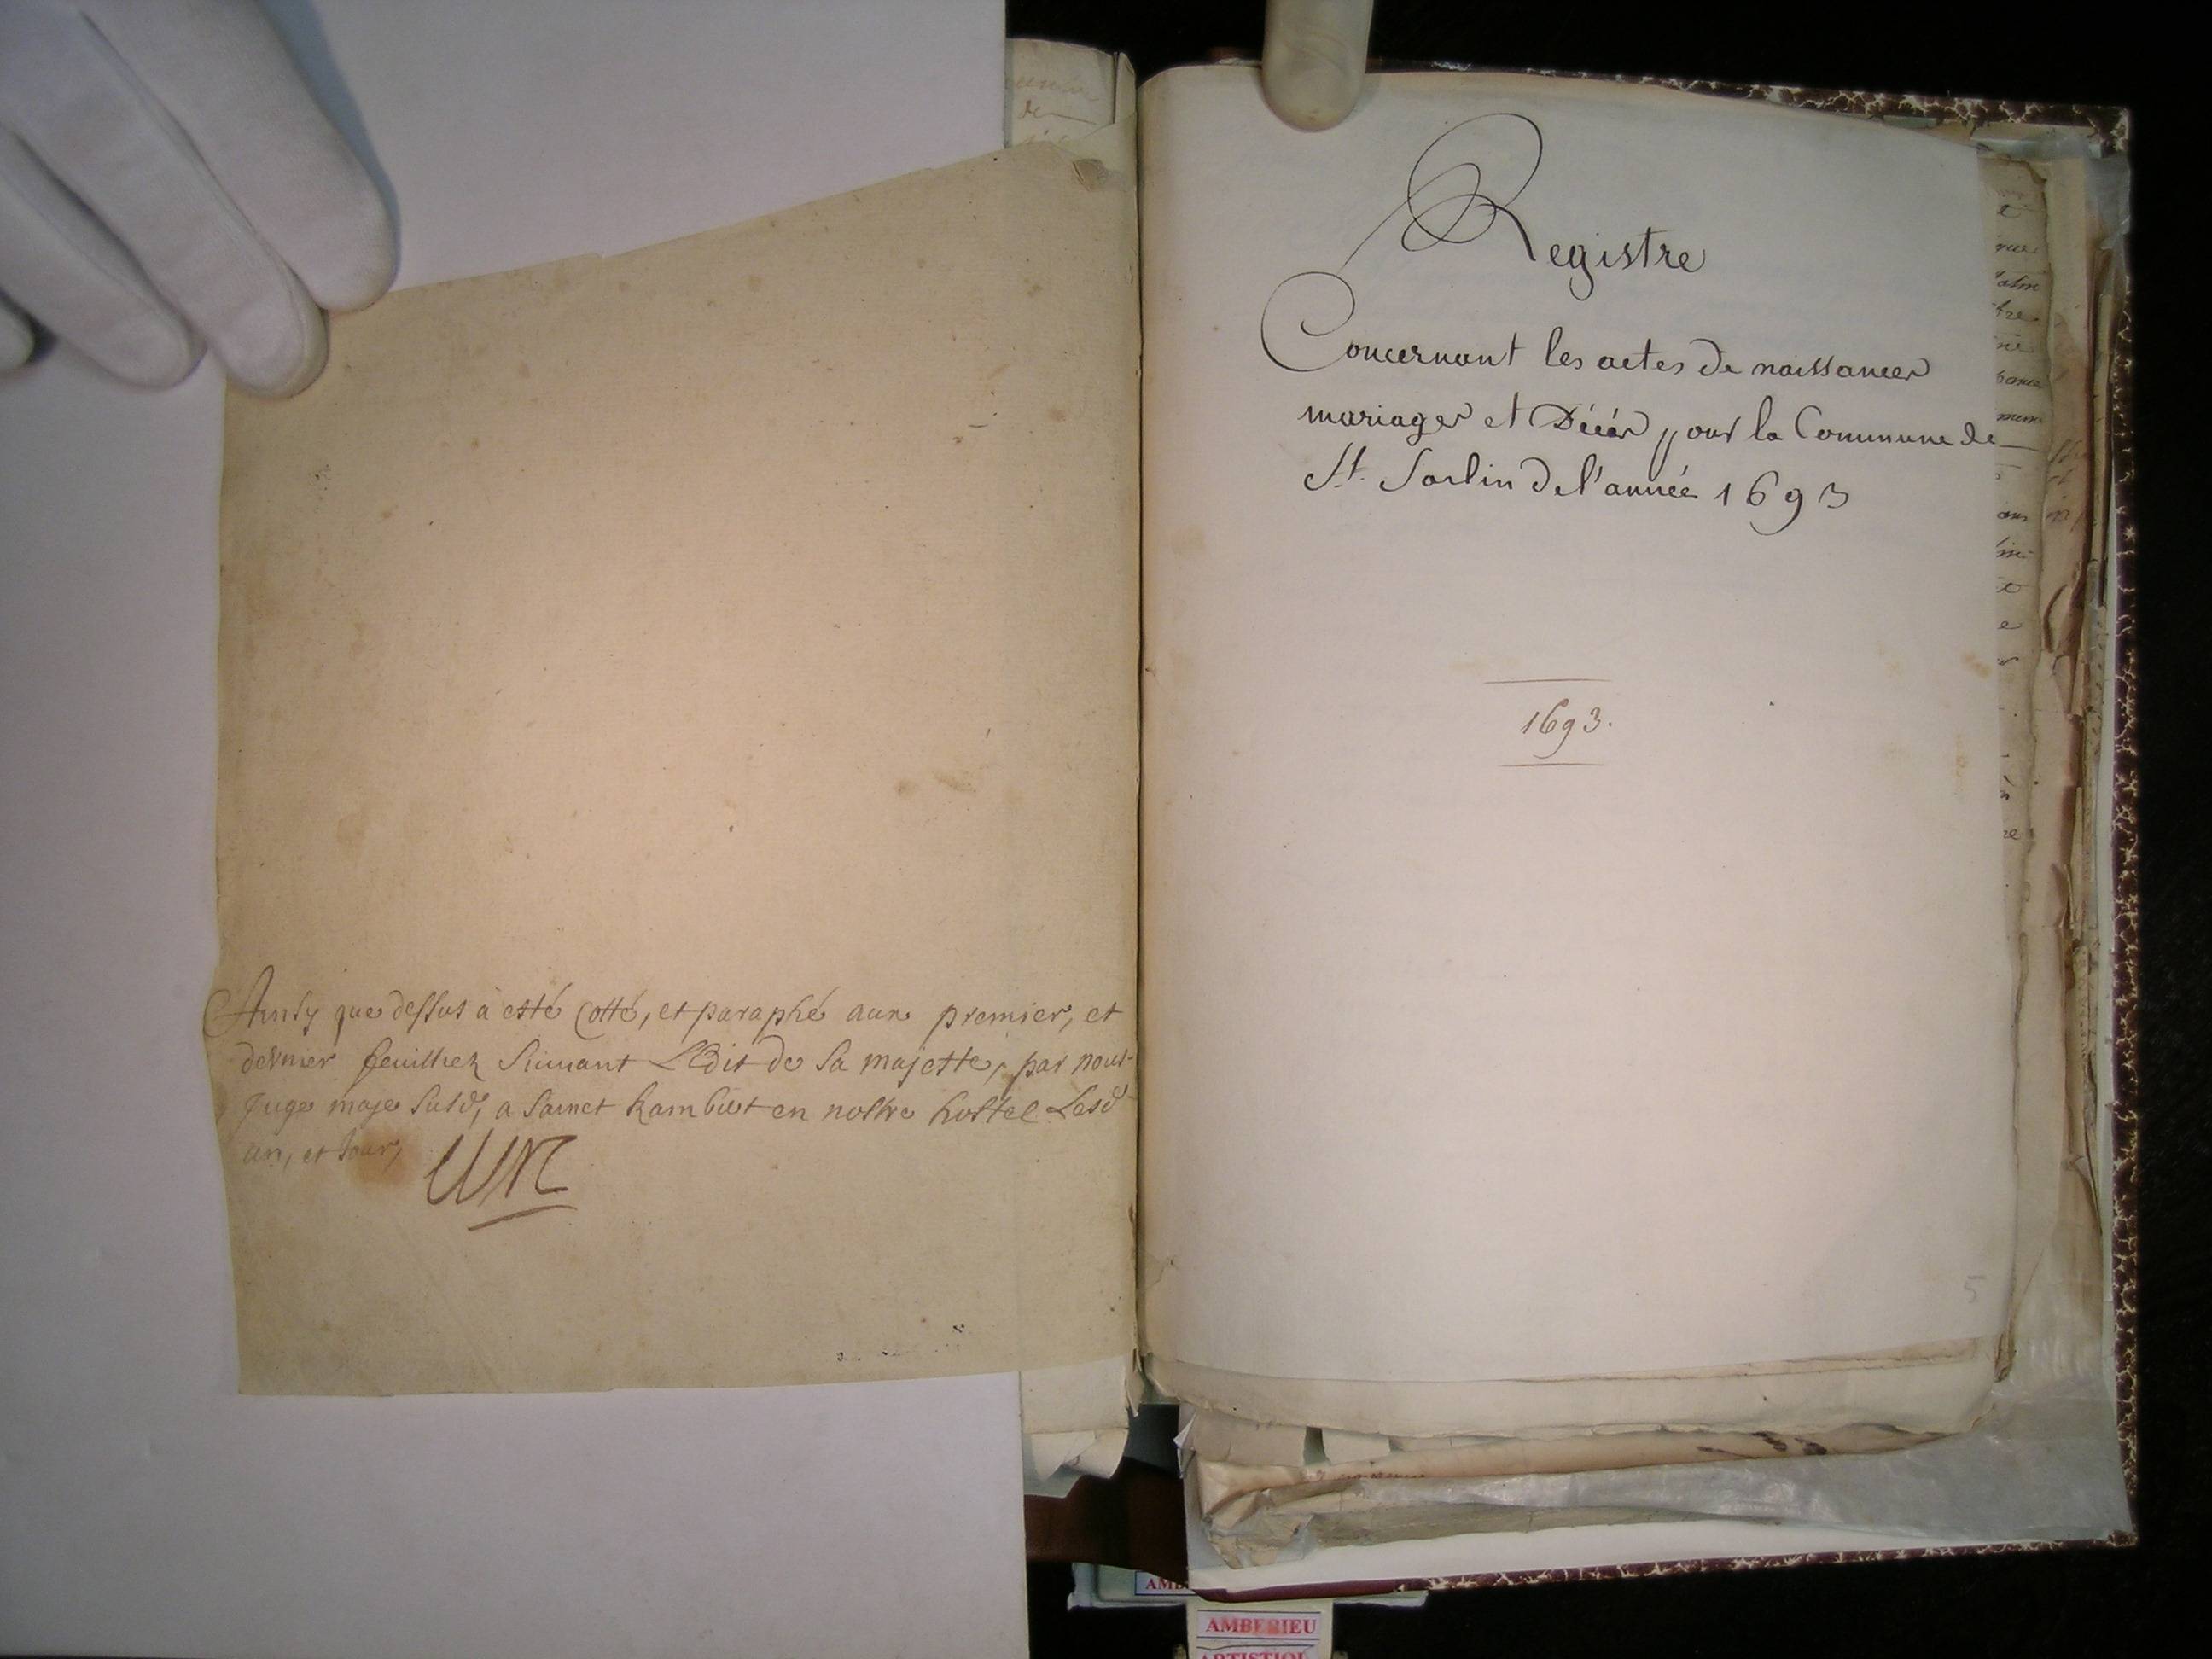 Ainsy que dessus à esté Cotté, et paraphé aux premier, et
dernier feuillez Suiuant LEdit de Sa majette, par nous
Juge maje Susd, a Sainct Rambert en nostre hostel Lesd
an, et Jour,
Registre
Concernant les actes de naissances
mariages et Décès pour la Commune de
St. Sorlin de l'année 1693
1693.
5
AMBERIEU